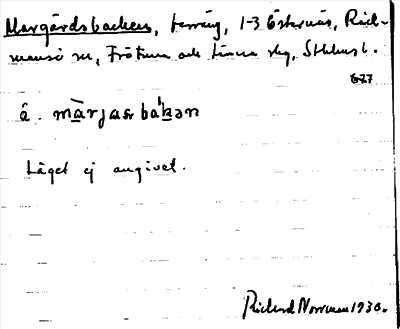 Margårdsbacken, terräng, 1-3 Östernäs, Råd-
mansö sn, Frötuna och Länna skg, Sthlms l.
677
å. màrjas bakən
Läget ej angivet.
Rickard Norrman 1930.